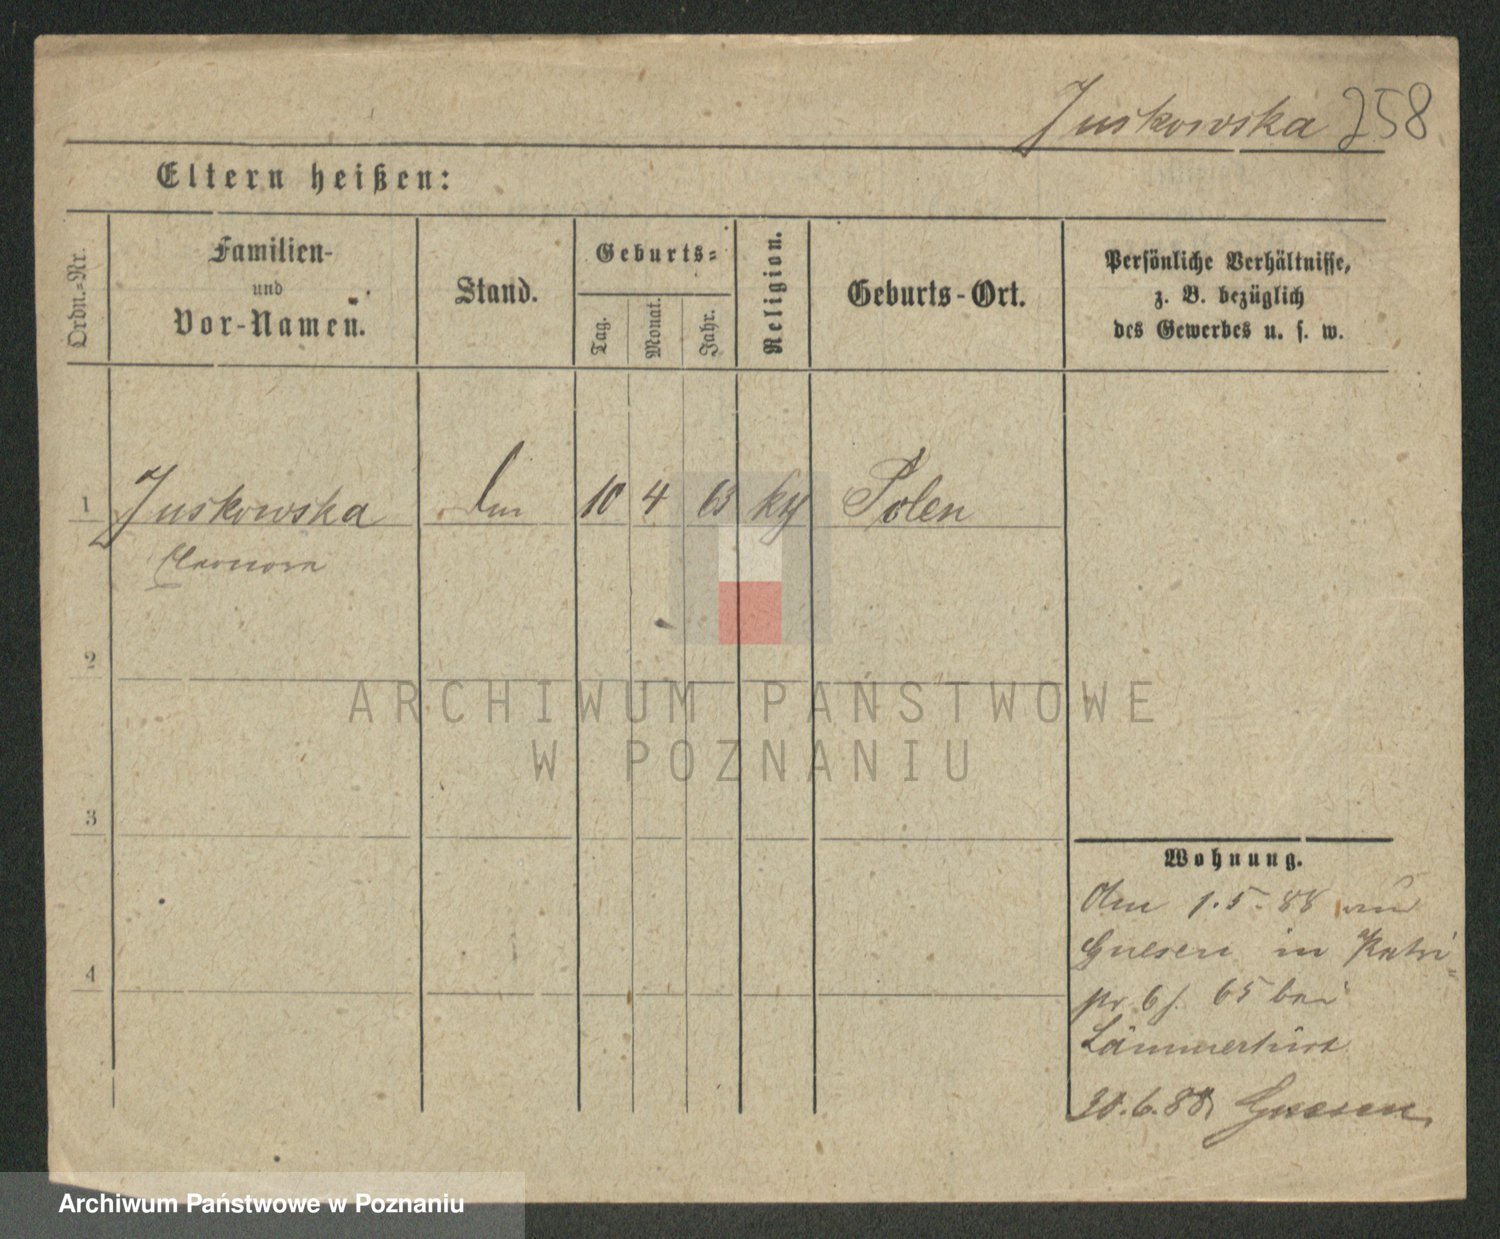 Juskowska 258
Eltern heißen:
Ordn.-Nr.
Familien-
und
Vor-Namen.
Stand.
Geburts-
Tag.
Monat.
Jahr.
Religion.
Geburts-Ort.
Persönliche Verhältnisse,
z. B. bezüglich
des Gewerbes u. s. w.
1 Juskowska 10 4 63 Polen
2
3
4
Wohnung.
1.5.88
Gnesen in
65 bei
30.6.88 Gnesen
ARCHIWUM PAŃSTWOWE
W POZNANIU
Archiwum Państwowe w Poznaniu